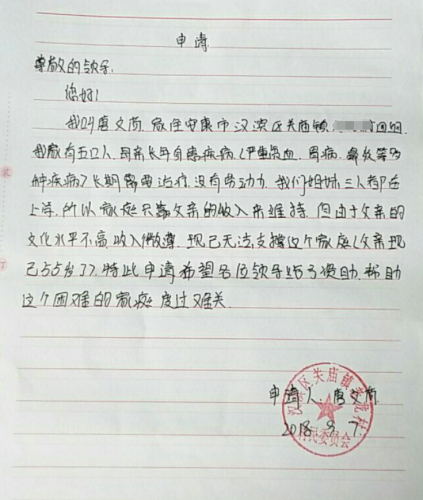 申请
尊敬的领导:
您好!
我叫唐文简,家住安康市汉滨区关庙镇
我家有五口人,母亲长年自患疾病(严重贫血、胃病、等多
种疾病)长期需要治疗,没有劳动力,我们姐妹三人都在
上学,所以家庭只靠父亲的收入来维持,但由于父亲的
文化水平不高,收入微薄,现已无法支撑这个家庭(父亲现
已55岁了),特此申请希望各位领导给予资助,帮助
这个困难的家庭度过难关.
申请人:唐文简
2018.9.7
汉滨区关庙镇
村民委员会